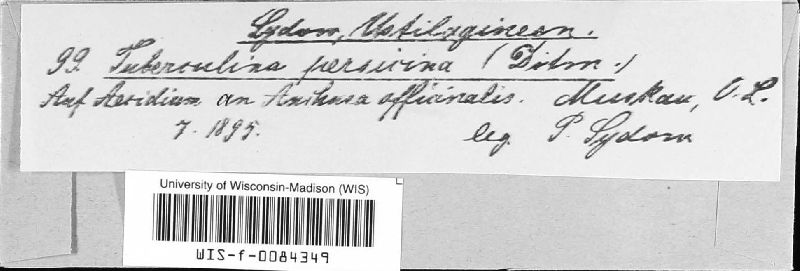 Sydow, Ustilagineen.
99. Tuberculina persicina (Ditm.)
Auf Aecidium an Anchusa officinalis. Muskau, O.L.
7. 1895. leg. P. Sydow
University of Wisconsin-Madison (WIS)
WIS-f-0084349